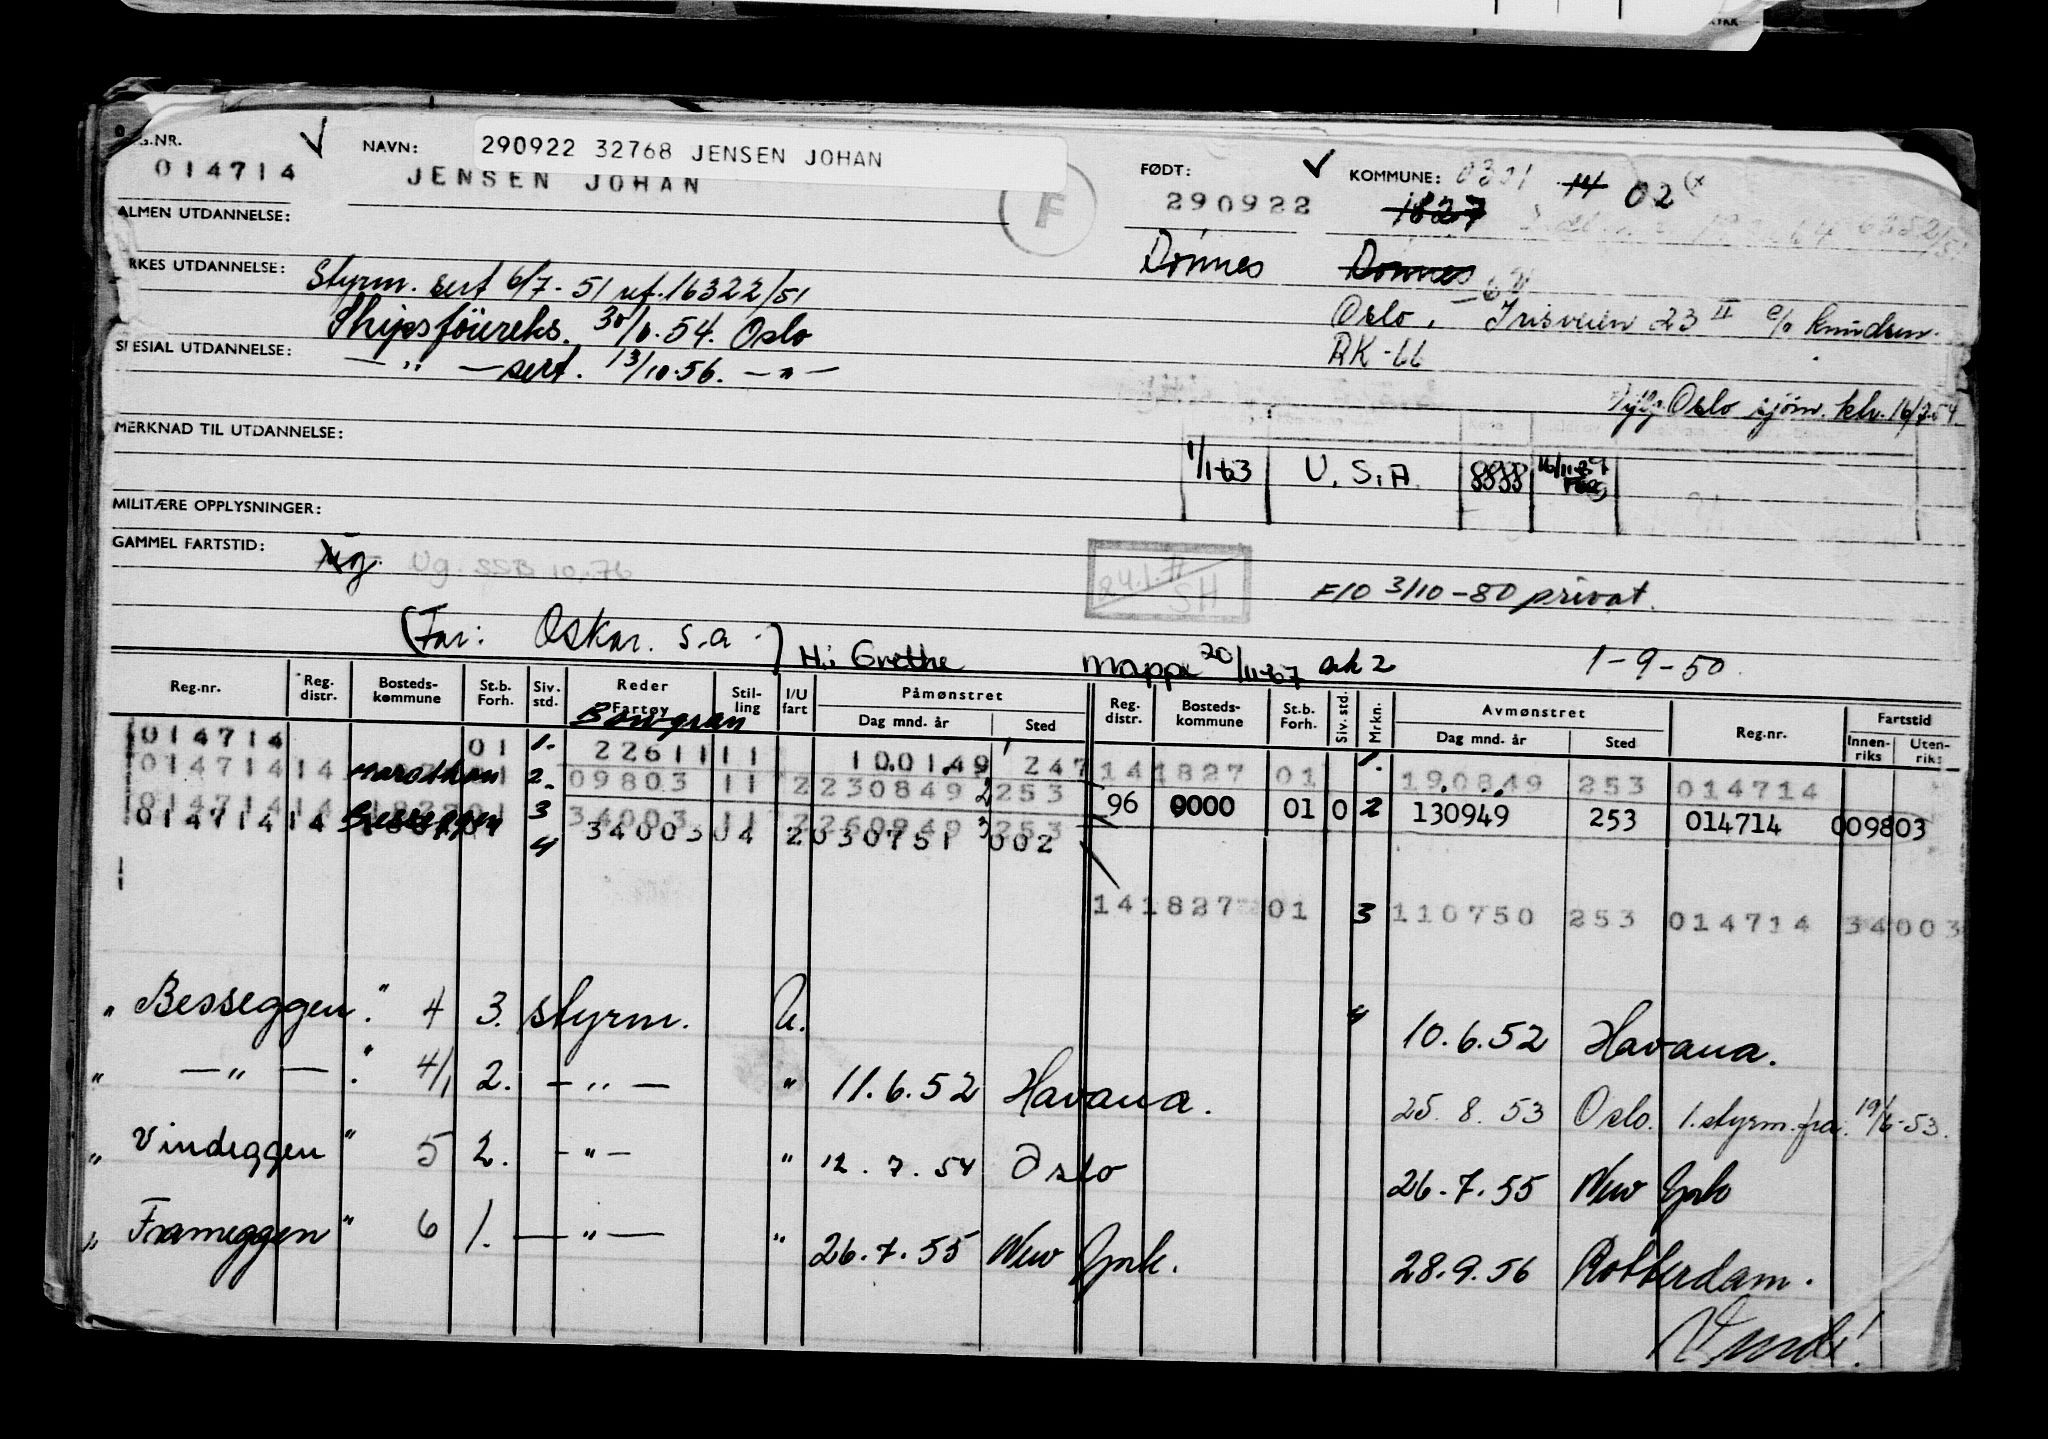 G.NR.
014714
NAVN:
290922 32768 JENSEN JOHAN
JENSEN JOHAN
F
FØDT:
290922
Dønnes
KOMMUNE: 0301 14 02
1827
Dønnes
Oslo, Irisveien 23 II c/o Knudsen.
RK-66
Oslo sjøm. ktr. 16/7.54
ALMEN UTDANNELSE:
RKES UTDANNELSE:
Styrm. sert 6/7-51 ref. 16322/51
Skipsføtereks. 30/6.54. Oslo
SPESIAL UTDANNELSE:
— " — sert. 13/10-56. — " —
MERKNAD TIL UTDANNELSE:
1/1-63 U.S.A.
MILITÆRE OPPLYSNINGER:
GAMMEL FARTSTID:
Ug. SSB 10.-76
24.1.71
SH
F/O 3/10-80 privat.
(Far: Oskar. s.a.) H: Grethe Mappe 20/11-67 ark 2 1-9-50.
Reg.nr. Reg. distr. Bosteds-kommune St.b. Forh. Siv. std. Reder Fartøy Stil-ling I/U fart Påmønstret Dag mnd. år Sted Reg. distr. Bosteds-kommune St.b. Forh. Siv. std. Mrkn. Avmønstret Dag mnd. år Sted Reg.nr. Fartstid Innen-riks Uten-riks
Bowgran
014714 01 1. 22611 11 100149 247 14 1827 01 1. 190849 253 014714
014714 14 Marathon 01 2. 09803 11 2 230849 2 253 96 0000 01 0 2 130949 253 014714 009803
014714 14 1827 01 3 34003 11 2 260949 3 253
014714 14 Besseggen 4 34003 04 2 030751 002
14 1827 01 3 110750 253 014714 34003
" Besseggen." 4 3. styrm. U. 4 10.6.52 Havana.
" — " — ." 4/1 2. — " — " 11.6.52 Havana. 25.8.53 Oslo. 1. styrm. fra. 19/6-53.
" Vindeggen " 5 2. — " — " 12.7.54 Oslo 26.7.55 New York
" Frameggen " 6 1. — " — " 26.7.55 New York. 28.9.56 Rotterdam.
Vend!